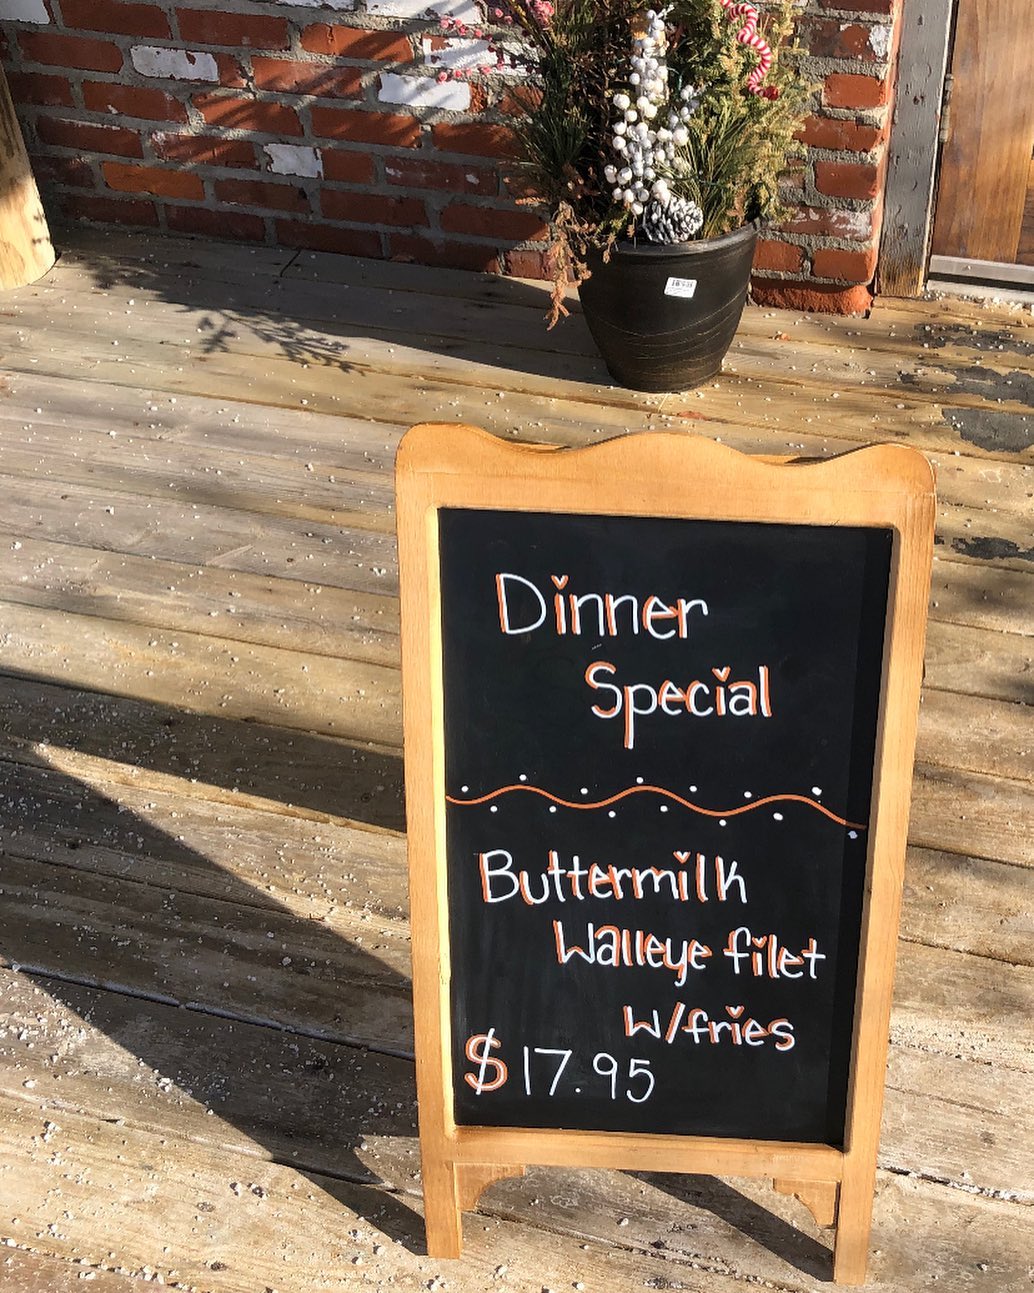 Dinner
Special
Buttermilk
Walleye filet
w/fries
$17.95